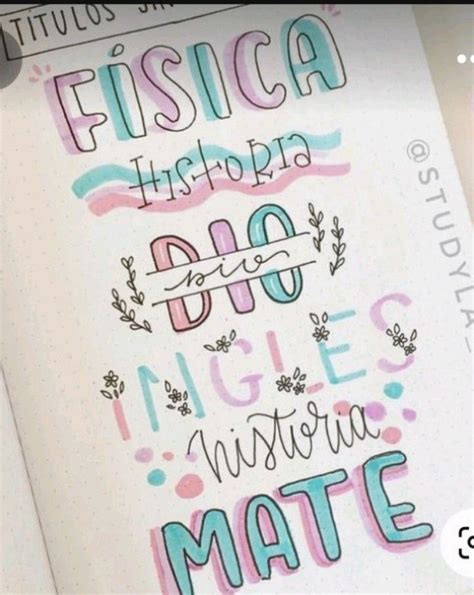 TÍTULOS
FÍSICA
HISTORIA
DIO
bio
INGLES
historia
MATE
@STUDYLA_